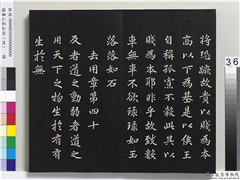 將恐蹶故貴以賤為本
高以下為基是以侯王
自稱孤寡不穀此其以
賤為本耶非乎故致數
車無車不欲琭琭如玉
落落如石
去用章第四十
反者道之動弱者道之
用天下之物生於有有
生於無
36